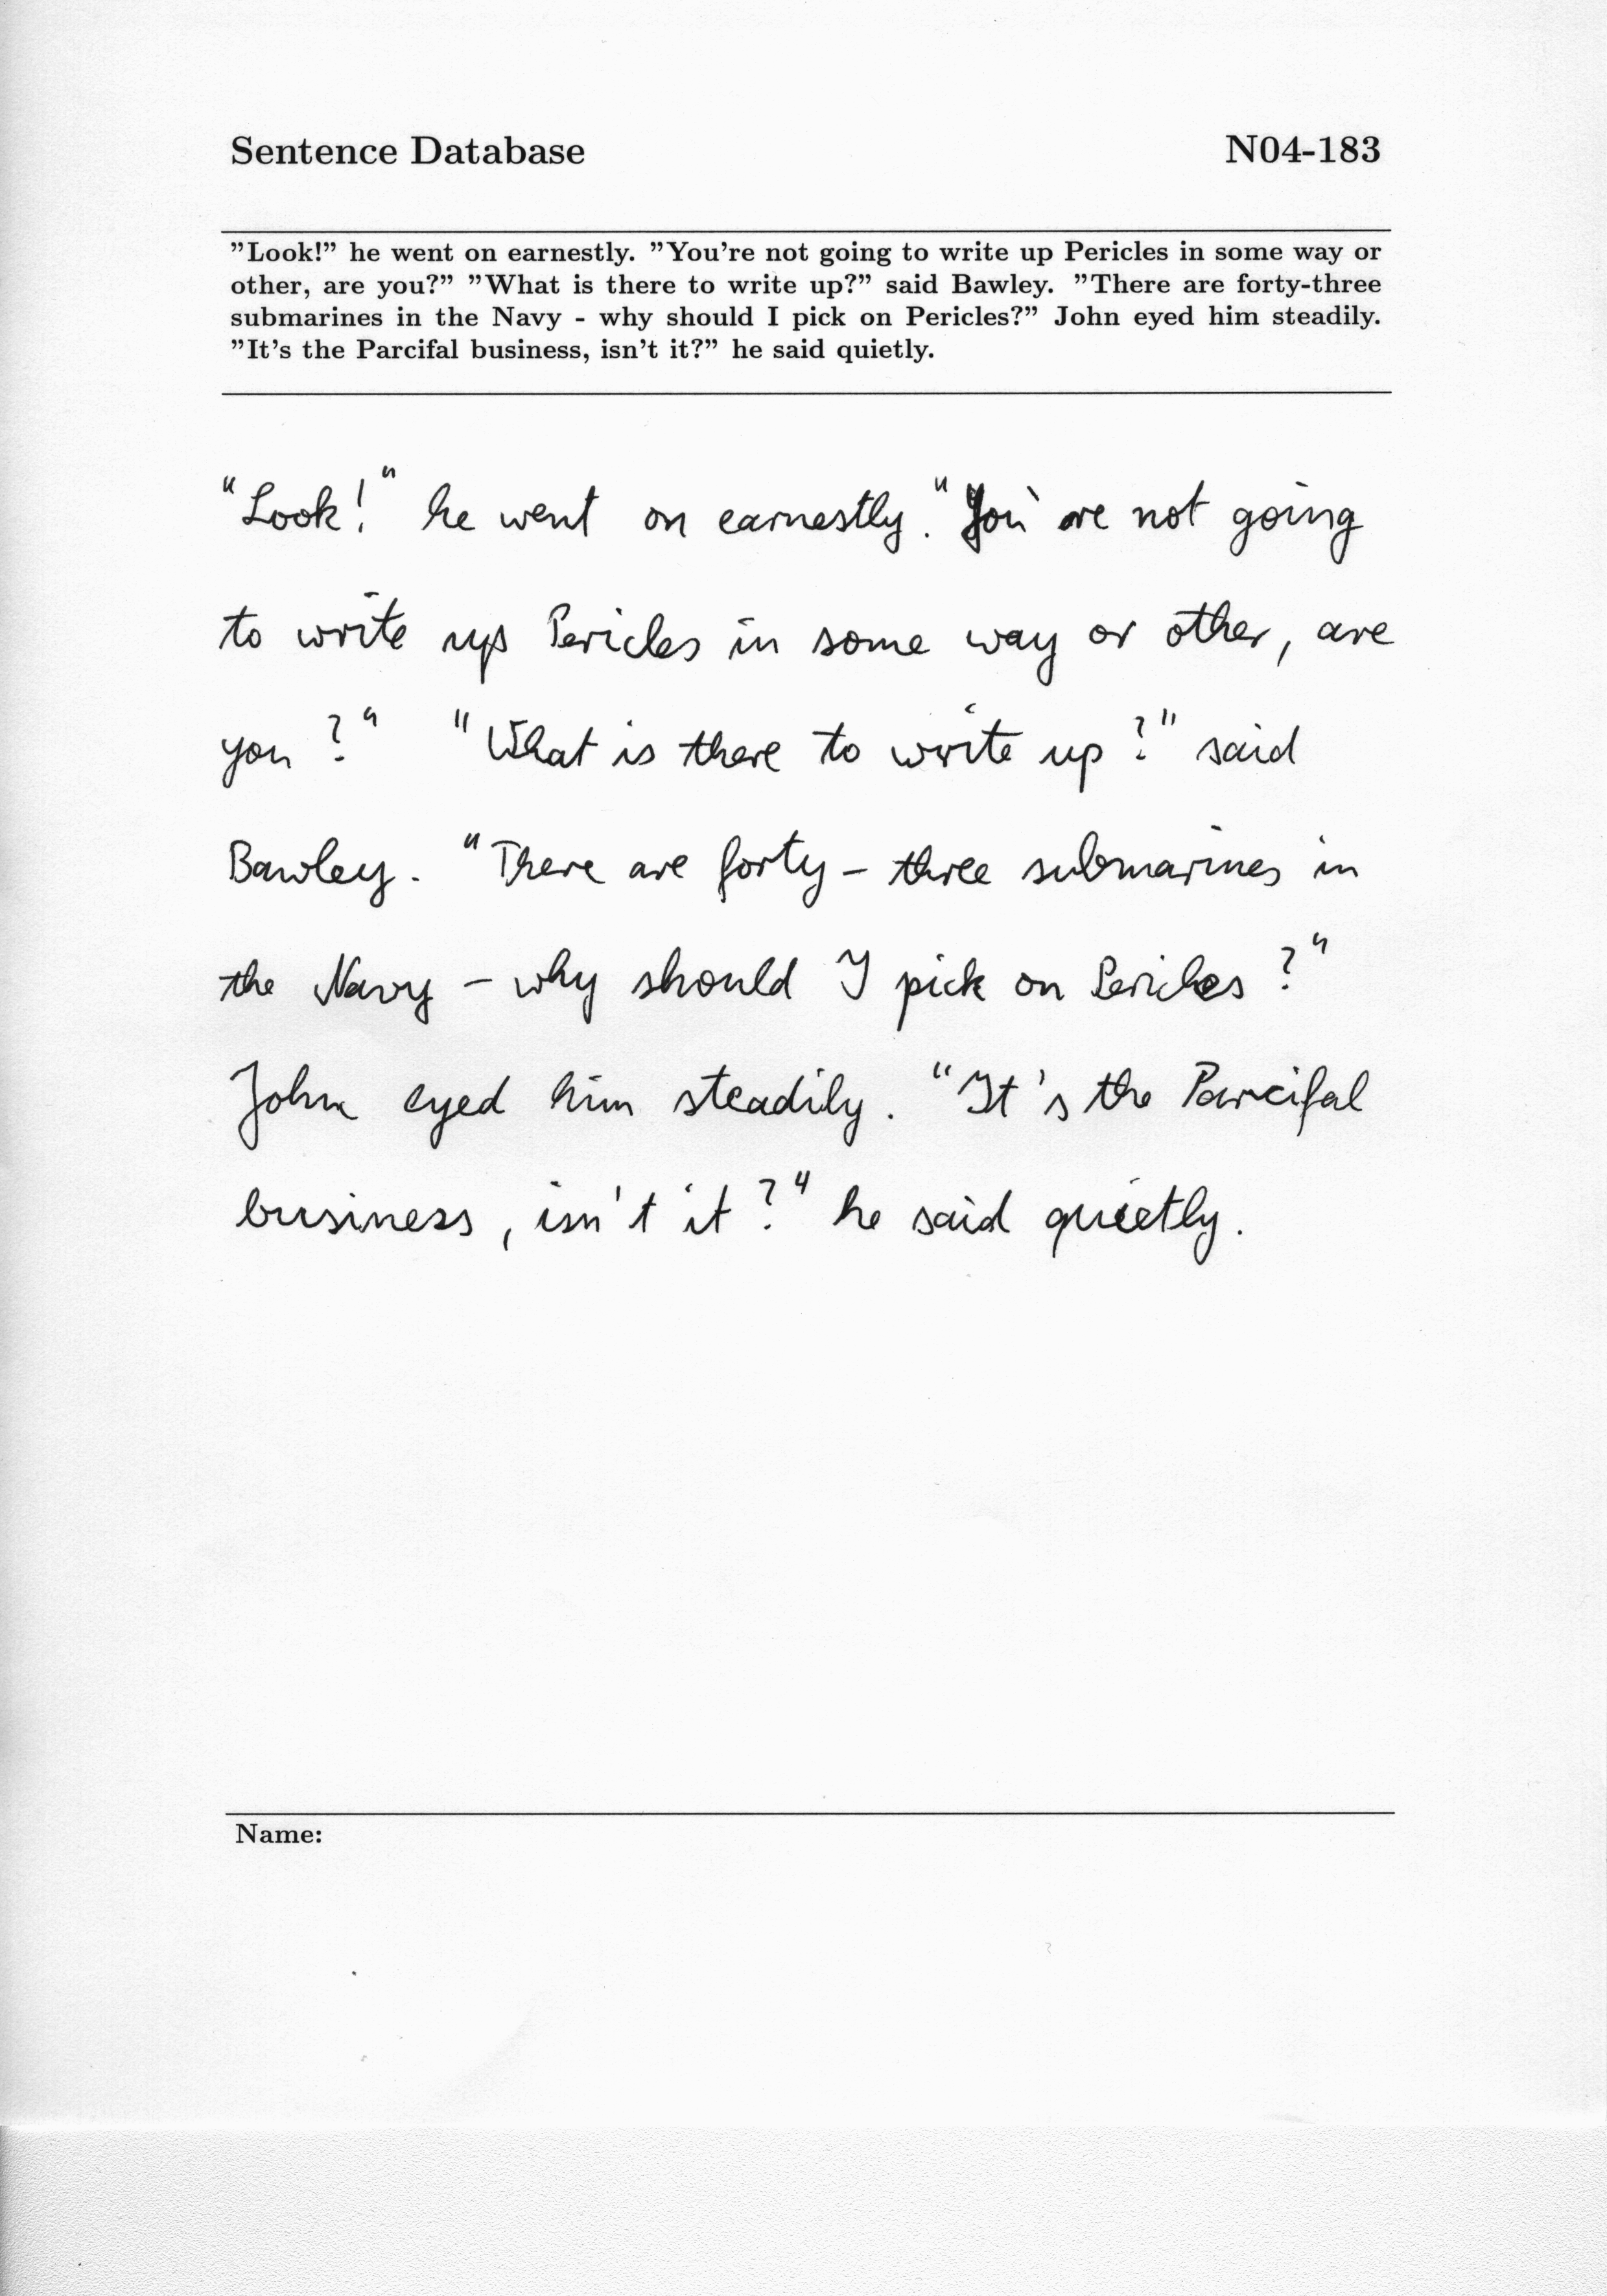 Sentence Database N04-183
"Look!" he went on earnestly. "You're not going to write up Pericles in some way or
other, are you?" "What is there to write up?" said Bawley. "There are forty-three
submarines in the Navy - why should I pick on Pericles?" John eyed him steadily.
"It's the Parcifal business, isn't it?" he said quietly.
"Look!" he went on earnestly. "You're not going
to write up Pericles in some way or other, are
you?" "What is there to write up?" said
Bawley. "There are forty-three submarines in
the Navy - why should I pick on Pericles?"
John eyed him steadily. "It's the Parcifal
business, isn't it?" he said quietly.
Name: